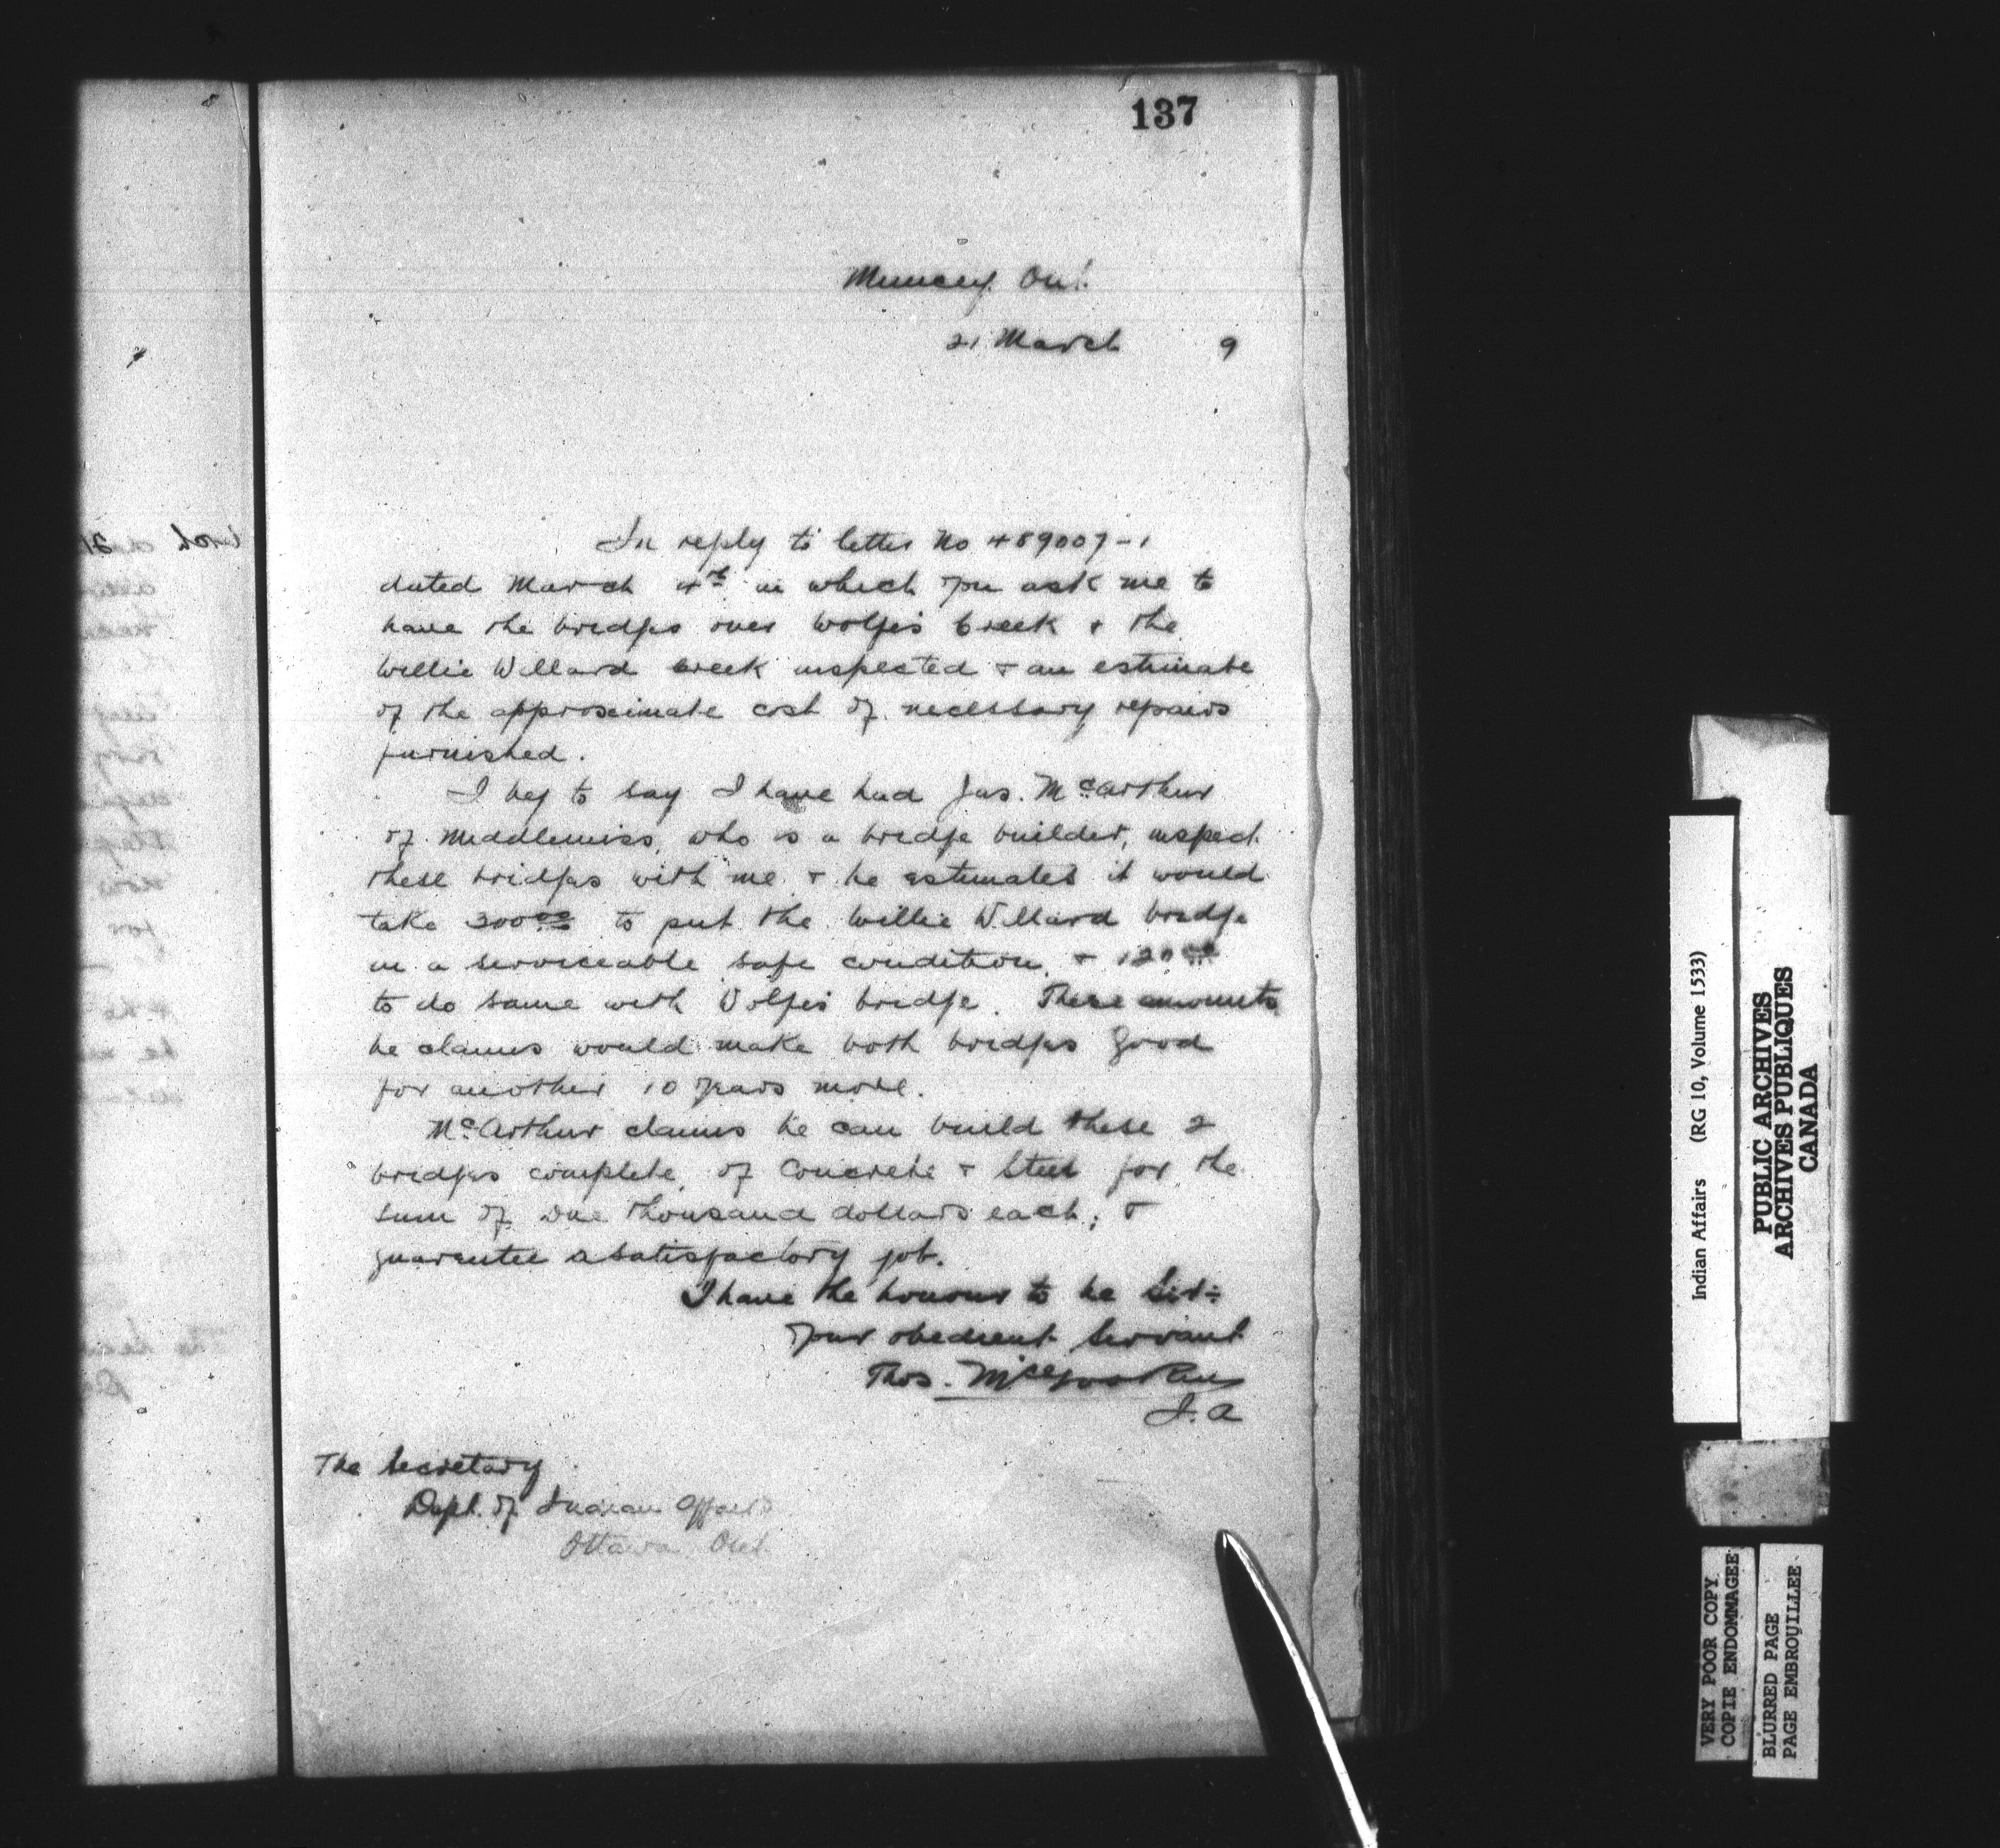 137
Muncey Ont.
21 March 9
In reply to letter No 489009-1
dated March 4th in which you ask me to
have the bridges over Wolfe's Creek & the
Willie Willard creek inspected & an estimate
of the approximate cost of necessary repairs
furnished.
I beg to say I have had Jas. McArthur
of Middlemiss, who is a bridge builder, inspect
these bridges with me & he estimates it would
take 300.00 to put the Willie Willard bridge
in a serviceable safe condition, & 120.00
to do same with Wolfe's bridge. These amounts
he claims would make both bridges good
for another 10 years more.
McArthur claims he can build these 2
bridges complete, of Concrete & Steel for the
sum of one thousand dollars each; &
guarantee a satisfactory job.
I have the honour to be Sir:
Your obedient Servant
Thos.
I. A
The Secretary
Dept. of Indian Affairs
Ottawa Ont.
Indian Affairs (RG 10, Volume 1533)
PUBLIC ARCHIVES
ARCHIVES PUBLIQUES
CANADA
VERY POOR COPY
COPIE ENDOMMAGEE
BLURRED PAGE
PAGE EMBROUILLEE